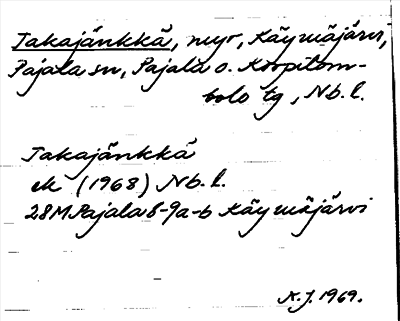 Takajänkkä, myr, Käymäjärvi,
Pajala sn, Pajala o. Korpilom-
bolo tg, Nb. l.
Takajänkkä
ek (1968) Nb. l.
28M Pajala 8-9a-b Käymäjärvi
N.J. 1969.